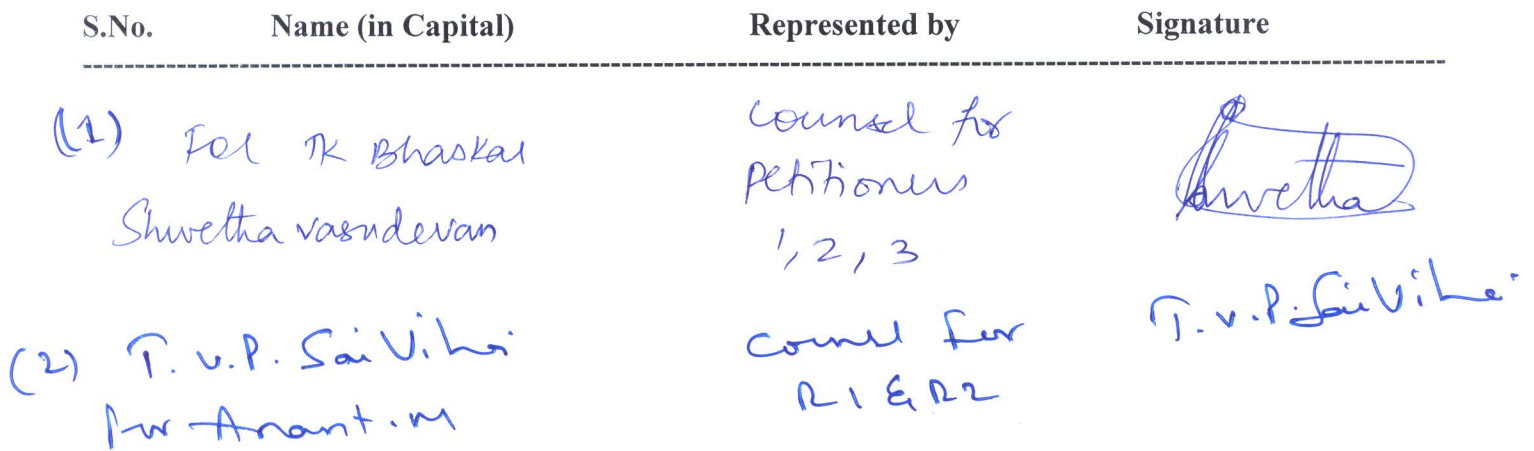 S.No. Name (in Capital) Represented by Signature
(1) For TK Bhaskar
Shwetha vasudevan
Counsel for
petitioners
1, 2, 3
Shwetha
(2) T. V. P. Sai Vihari
for Anant. M
Counsel for
R1 & R2
T. V. P. Sai Vihari